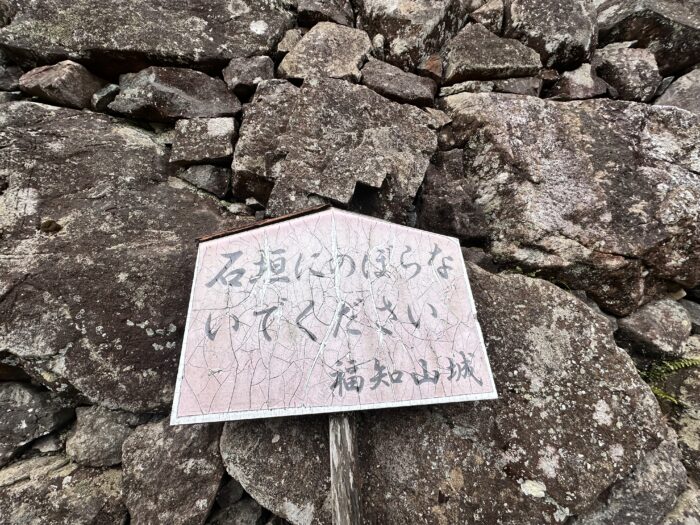 石垣にのぼらな
いでください
福知山城